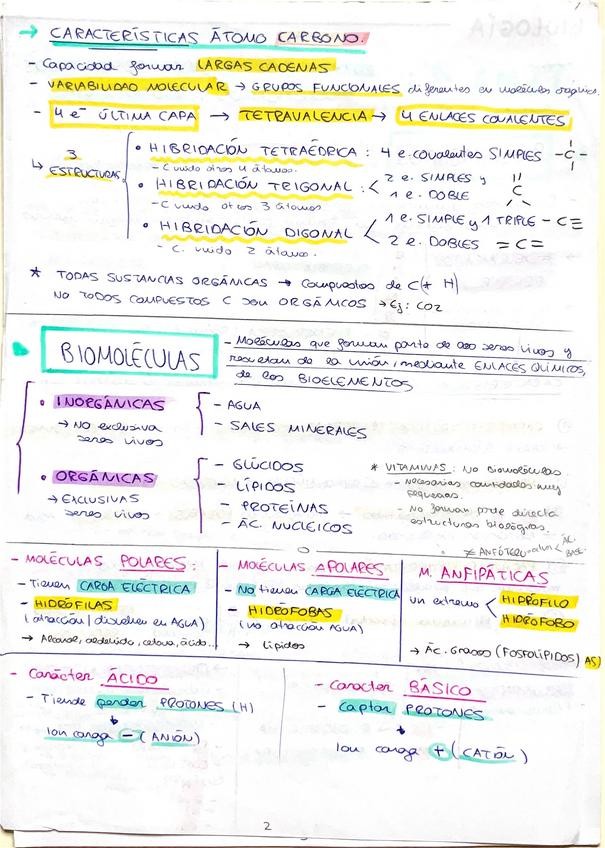 → CARACTERÍSTICAS ÁTOMO CARBONO.
- Capacidad formar LARGAS CADENAS
- VARIABILIDAD MOLECULAR → GRUPOS FUNCIONALES diferentes en molécula orgánica.
- 4 e⁻ ÚLTIMA CAPA → TETRAVALENCIA → 4 ENLACES COVALENTES
↳ 3 ESTRUCTURAS
• HIBRIDACIÓN TETRAÉDRICA : 4 e. covalentes SIMPLES -C-
- C unido otros 4 átomos.
• HIBRIDACIÓN TRIGONAL : < 2 e. SIMPLES y
1 e. DOBLE
C
- C unido otros 3 átomos
• HIBRIDACIÓN DIGONAL < 1 e. SIMPLE y 1 TRIPLE - C≡
2 e. DOBLES = C =
- C. unido 2 átomos.
* TODAS SUSTANCIAS ORGÁNICAS → Compuestos de C (+ H)
NO TODOS COMPUESTOS C SON ORGÁNICOS → Ej: CO2
BIOMOLÉCULAS
- Moléculas que forman parte de los seres vivos y
resultan de la unión, mediante ENLACES QUÍMICOS,
de los BIOELEMENTOS
• INORGÁNICAS
→ NO exclusiva
seres vivos
- AGUA
- SALES MINERALES
• ORGÁNICAS
→ EXCLUSIVAS
seres vivos
- GLÚCIDOS
- LÍPIDOS
- PROTEÍNAS
- ÁC. NUCLEICOS
* VITAMINAS : No Biomoléculas.
- Necesarias cantidades muy
pequeñas.
- No forman parte directa
estructuras biológicas.
≠ ANFÓTERO
- MOLÉCULAS POLARES :
- Tienen CARGA ELÉCTRICA
- HIDRÓFILAS
(atracción / disuelven en AGUA)
→ Alcohol, aldehído, cetona, ácido...
- MOLÉCULAS APOLARES
- No tienen CARGA ELÉCTRICA
- HIDRÓFOBAS
(no atracción AGUA)
→ Lípidos
M. ANFIPÁTICAS
un extremo < HIPRÓFILO
HIDRÓFOBO
→ Ác. Grasos (FOSFOLÍPIDOS) AS)
- Carácter ÁCIDO
- Tiende perder PROTONES (H)
Ion carga - (ANIÓN)
- Caracter BÁSICO
- captar PROTONES
Ion carga + (CATIÓN)
2